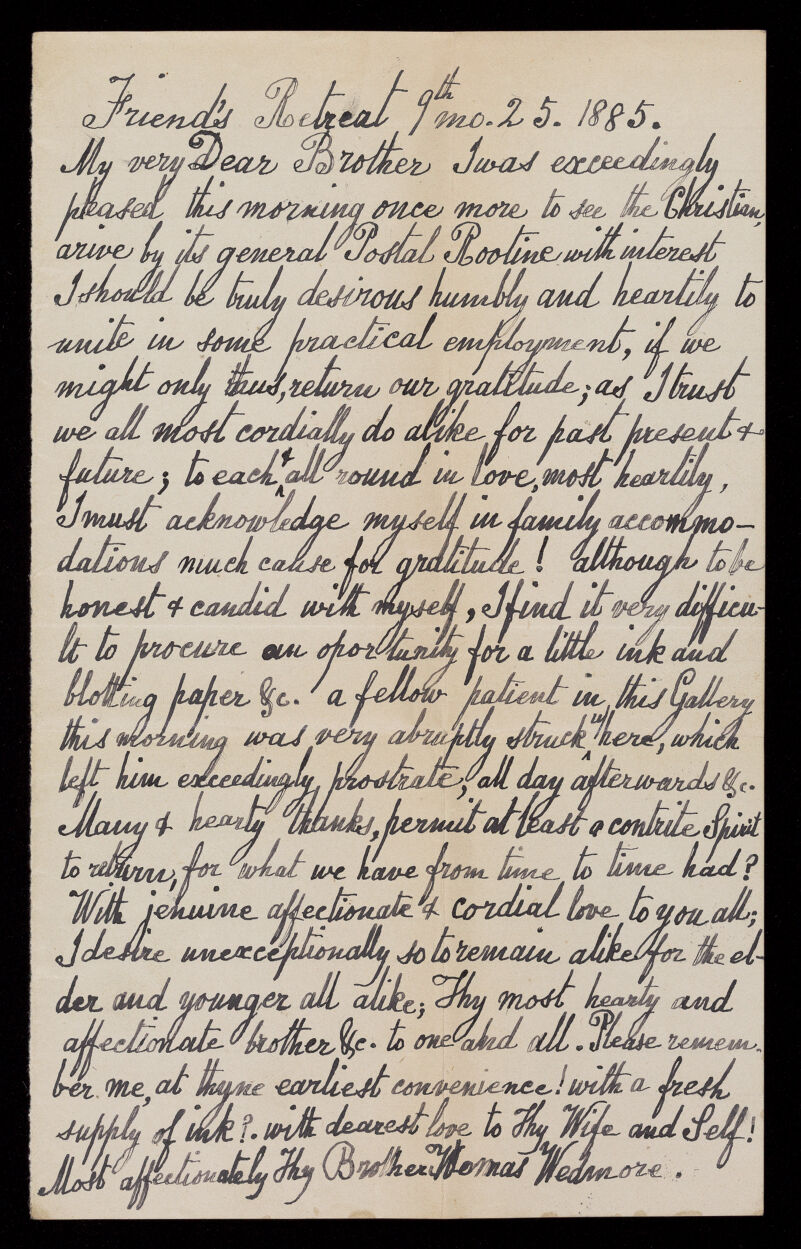 Friend's Retreat 9th mo. 25. 1885.
My very Dear Brother I was exceedingly
pleased this morning once more to see the Christian,
arive by its general Postal Rootine with interest
I should be truly desirous humbly and heartily to
unite in some practical employment, if we
might only thus, return our gratitude; as, I trust
we all most cordially do alike for past present &
future; to each & all round in love, most heartily,
I must acknowledge myself in family accommo-
dations much cause for gratitude! although to be
honest & candid with myself, I find it very difficu-
lt to procure an oportunity for a little ink and
blotting paper &c. a fellow patient in this Gallery
this morning was very abruptly struck in here, which
left him exceedingly prostrate, all day afterwards &c.
Many & hearty thanks, permit at least a contrite Spirit
to return, for what we have from time to time had?
With jenuine affectionate & cordial love to you all;
I desire unexceptionally so to remain alike for the el-
der and younger all alike; Thy most hearty and
affectionate brother &c. to one and all. Please remem-
ber me, at thyne earliest convenience! with a fresh
supply of ink?. with dearest love to Thy Wife and Self!
Most affectionately Thy Brother Thomas Wedmore.